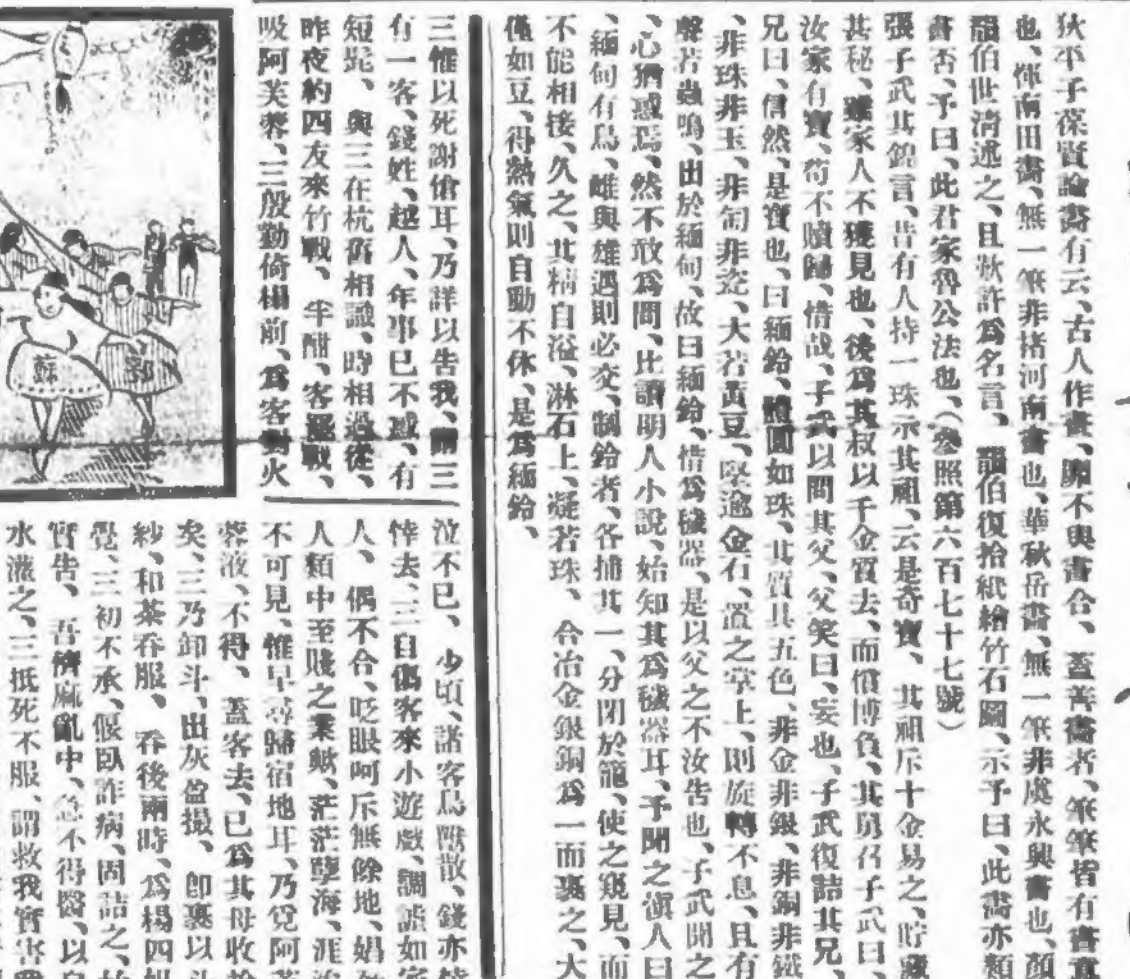 狄平子葆賢論畫有云、古人作畫、罔不與書合、蓋善畫者、筆筆皆有書意
也、惲南田畫、無一筆非褚河南書也、華秋岳畫、無一筆非虞永興書也、顏
韻伯世清述之、且歎許爲名言、韻伯復拾紙繪竹石圖、示予曰、此畫亦類
書否、予曰、此君家魯公法也、（參照第六百七十七號）
張子武其鍠言、昔有人持一珠示其祖、云是奇寶、其祖斥十金易之、貯藏
甚秘、雖家人不獲見也、後爲其叔以千金質去、而償博負、其舅召子武曰、
汝家有寶、苟不贖歸、惜哉、子武以問其父、父笑曰、妄也、子武復詰其兄、
兄曰、信然、是寶也、曰緬鈴、體圓如珠、其質具五色、非金非銀、非銅非鐵
、非珠非玉、非匋非瓷、大若黃豆、堅逾金石、置之掌上、則旋轉不息、且有
聲若蟲鳴、出於緬甸、故曰緬鈴、惜爲穢器、是以父之不汝告也、子武聞之
、心猶惑焉、然不敢爲問、比讀明人小說、始知其爲穢器耳、予聞之滇人曰
、緬甸有鳥、雌與雄遇則必交、制鈴者、各捕其一、分閉於籠、使之窺見、而
不能相接、久之、其精自溢、淋石上、凝若珠、合冶金銀銅爲一而裹之、大
僅如豆、得熱氣則自動不休、是爲緬鈴、
三惟以死謝傖耳、乃詳以告我、謂三
有一客、錢姓、越人、年事已不惑、有
短髭、與三在杭舊相識、時相過從、
昨夜約四友來竹戰、半酣、客罷戰、
吸阿芙蓉、三殷勤倚榻前、爲客對火
泣不已、少頃、諸客鳥獸散、錢亦
悻去、三自傷客來小遊戲、調謔如
人、偶不合、眨眼呵斥無餘地、娼
人類中至賤之業歟、茫茫孽海、涯
不可見、惟早尋歸宿地耳、乃覓阿
蓉液、不得、蓋客去、已爲其母收
矣、三乃卸斗、出灰盈撮、卽裹以
紗、和茶吞服、吞後兩時、爲楊四
覺、三初不承、偃臥詐病、固詰之、
實告、吾儕麻亂中、急不得醫、以
水灌之、三抵死不服、謂救我實害
蘇
鄂